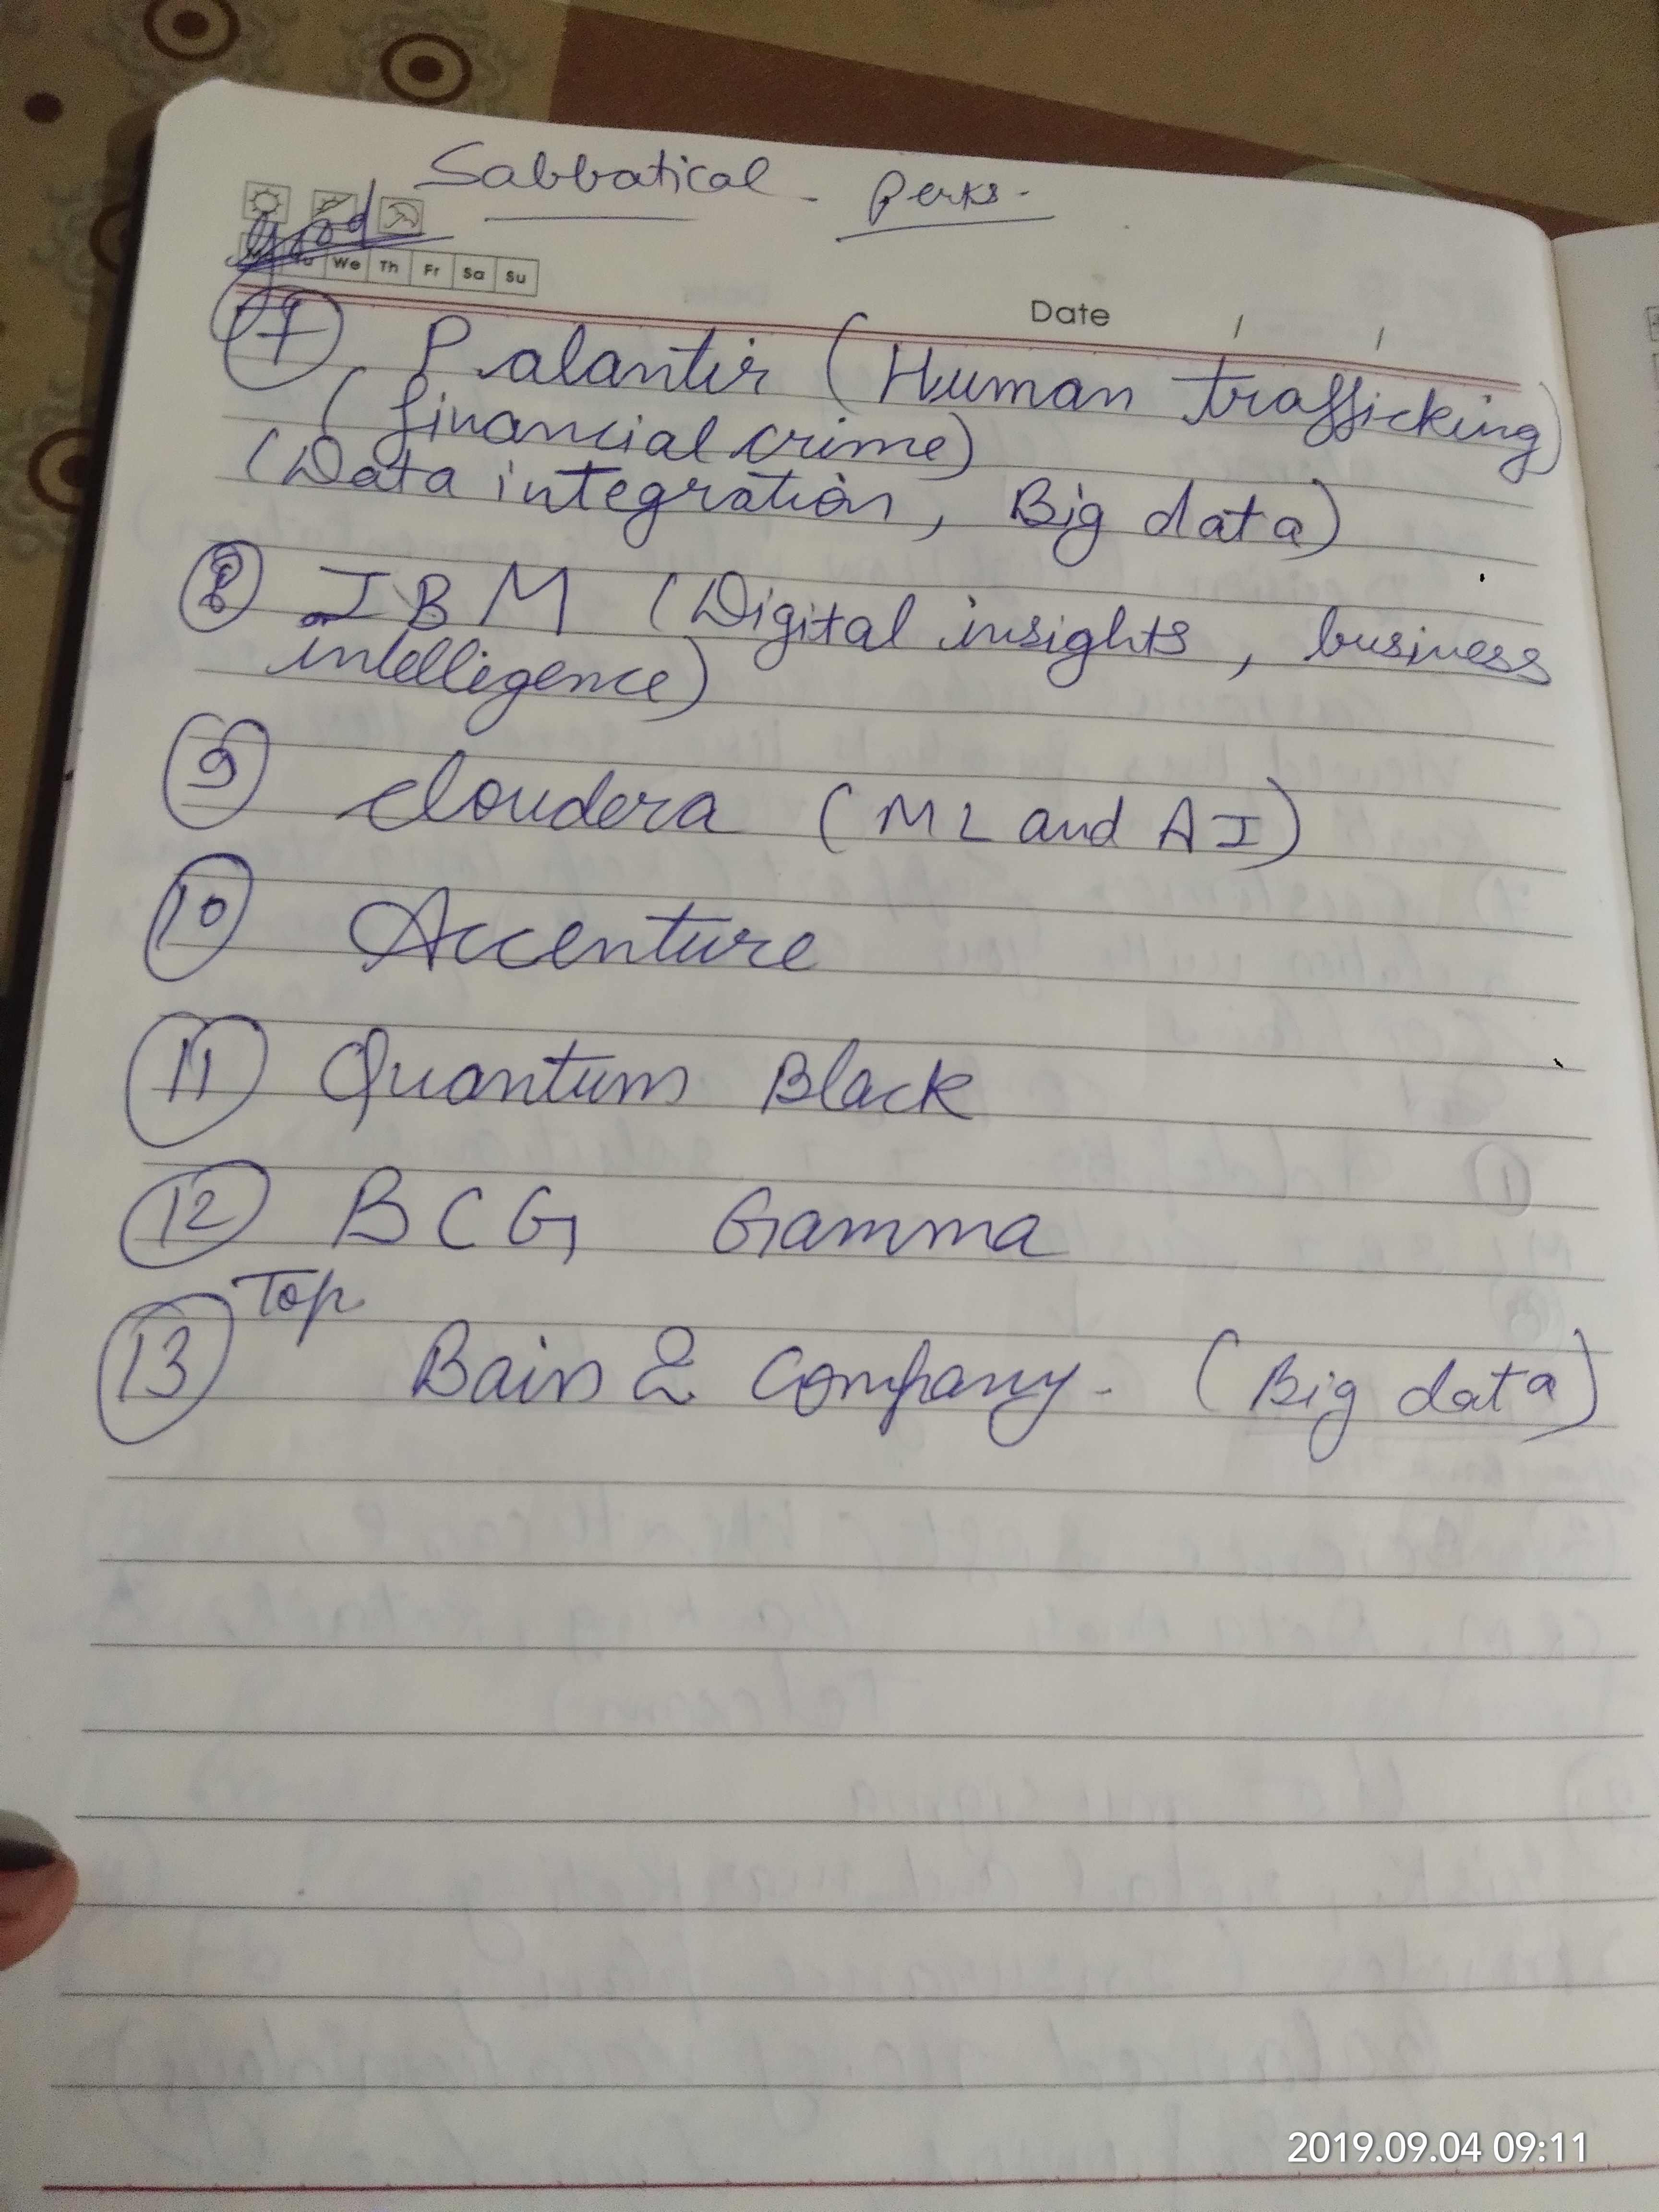 Sabbatical - perks.
good
We Th Fr Sa Su
Date / /
7 Palantir (Human trafficking)
(financial crime)
(Data integration, Big data)
8 IBM (Digital insights, business
intelligence)
9 cloudera (ML and AI)
10 Accenture
11 Quantum Black
12 BCG Gamma
Top
13 Bain & Company. (Big data)
2019.09.04 09:11